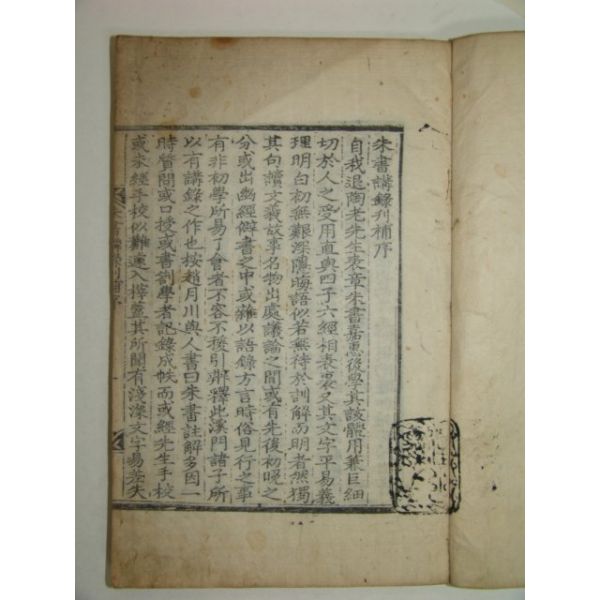 朱書講錄刋補序
自我退陶老先生表章朱書嘉惠後學其該體用兼巨細
切於人之受用直與四子六經相表裏又其文字平易義
理明白初無艱深隱晦語似若無待於訓解而明者然獨
其句讀文義故事名物出處議論之間或有先後初晚之
分或出幽經僻書之中或雜以語錄方言時俗見行之事
有非初學所易了會者不容不援引辨釋此溪門諸子所
以有講錄之作也按趙月川與人書曰朱書註解多因一
時質問或口授或書劄學者記錄成帙而或經先生手校
或未經手校似難遽入擇蓋其所聞有淺深文字易差失